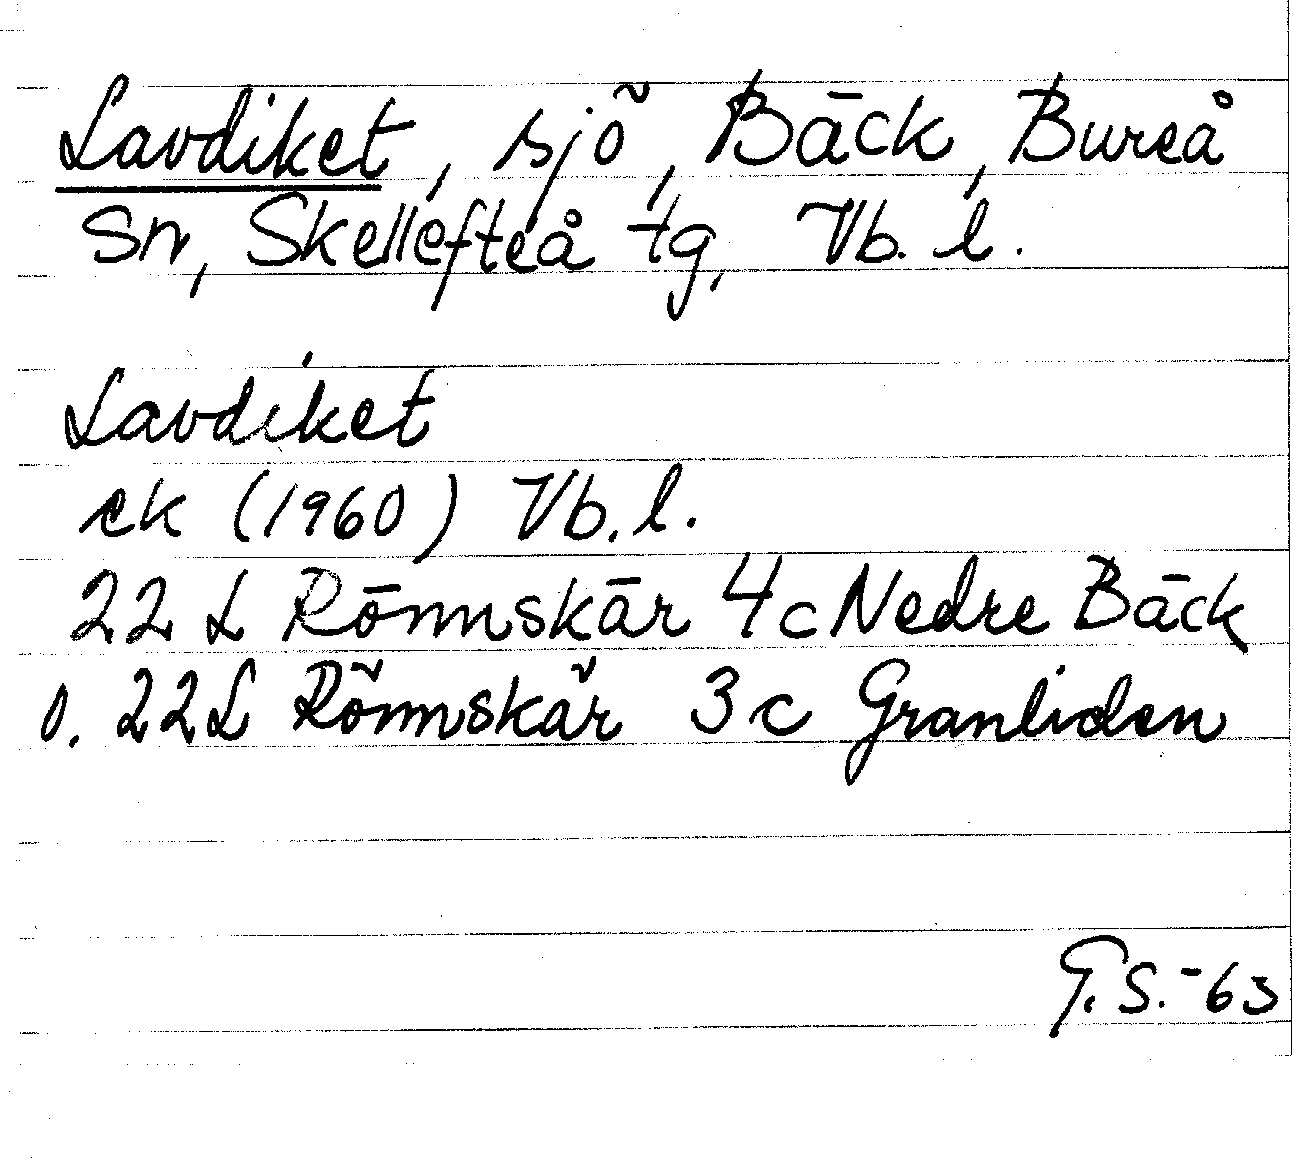 Lavdiket, sjö, Bäck, Bureå
sn, Skellefteå tg, Vb. l.
Lavdiket
ek (1960) Vb. l.
22 L Rönnskär 4c Nedre Bäck
o. 22L Rönnskär 3c Granliden
G.S.-63